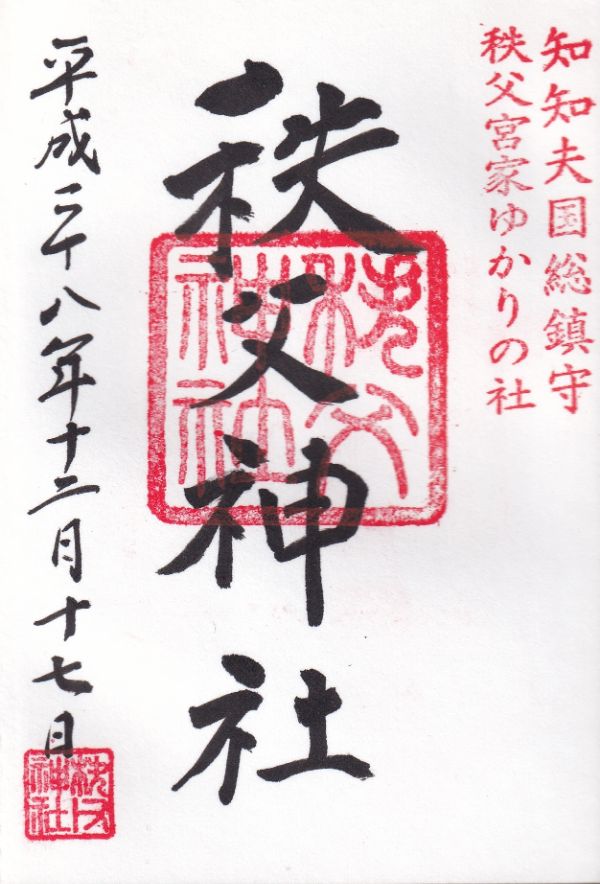 知知夫国総鎮守
秩父宮家ゆかりの社
秩父神社
秩父神社
平成二十八年十二月十七日
秩父神社